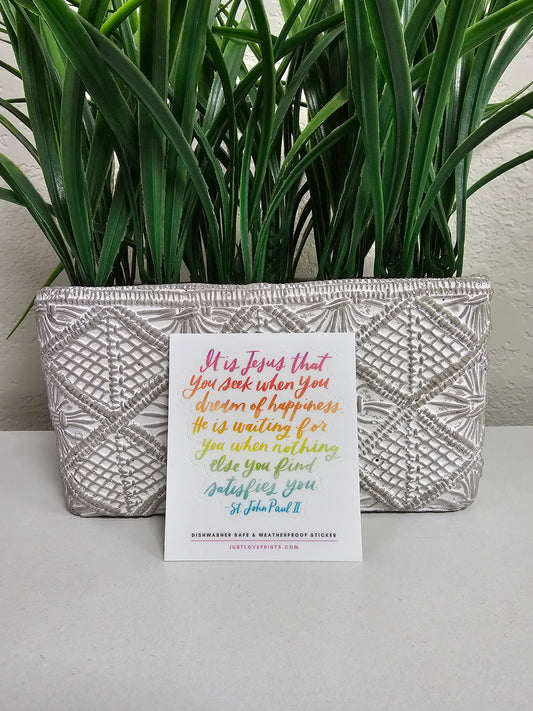 It is Jesus that
You seek when You
dream of happiness.
He is waiting for
you when nothing
else you find
satisfies you.
-St. John Paul II
DISHWASHER SAFE & WEATHERPROOF STICKER
JUSTLOVEPRINTS.COM